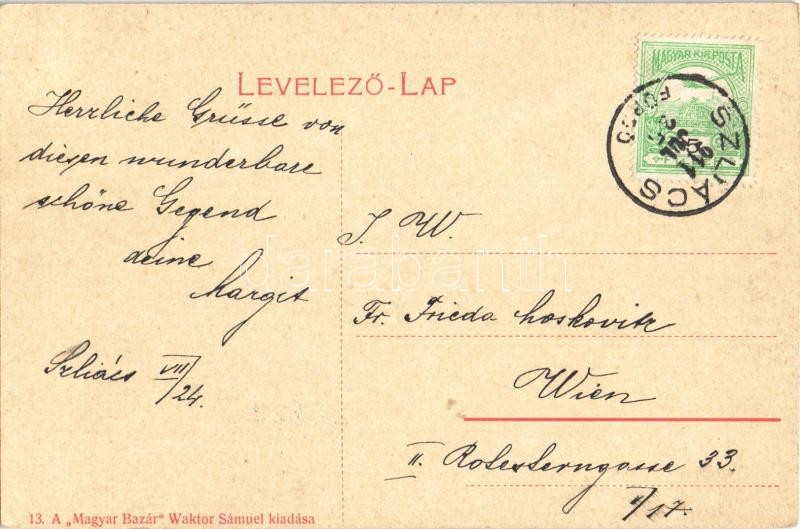 LEVELEZŐ-LAP
MAGYAR KIR. POSTA
SZLIÁCS
FÜRDŐ
911
Herrliche Grüsse von
diesen wunderbare
schöne Gegend
deine
Margit
Szliács VIII/24.
I. W.
Fr. Frieda Moskovitz
Wien
II. Rotesterngasse 33.
II/17.
darabanth
13. A „Magyar Bazár" Waktor Sámuel kiadása